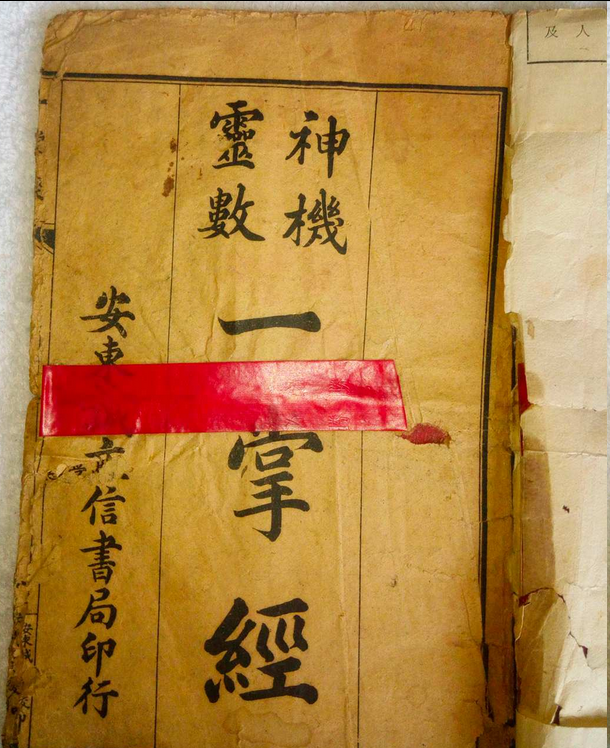 人及
神機
靈數
一掌經
安東文信書局印行